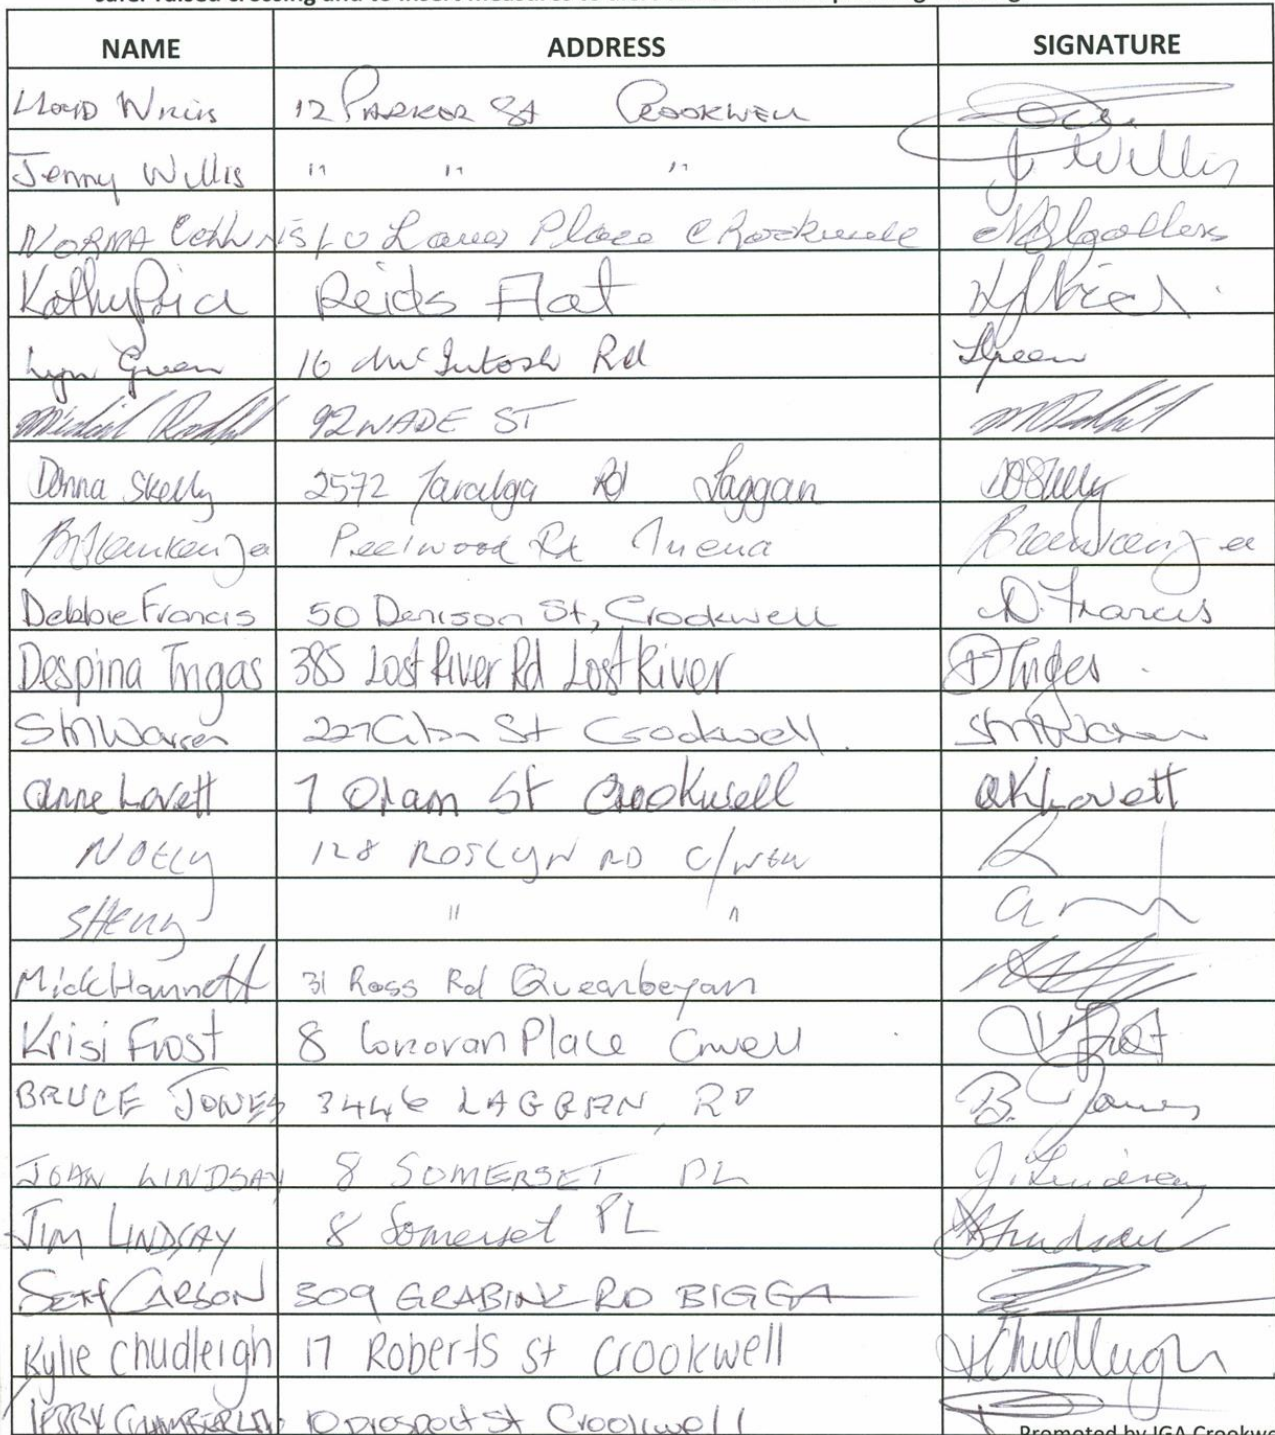 NAME ADDRESS SIGNATURE
LLOYD WILLIS 12 PARKER St CROOKWELL
Jenny Willis " " " J Willis
NORMA Place CRookwell
Kathy Reids Flat
Lyn Green 16 McIntosh Rd LGreen
92 WADE ST
Donna Skelly 2572 Taralga Rd Laggan DSkelly
Peelwood Rd Tuena
Debbie Francis 50 Denison St, Crookwell D. Francis
Despina Trigas 385 Lost River Rd Lost River DTrigas
SM Warren St Crookwell SM Warren
anne Lovett 7 Oram St Crookwell aKLovett
NOELY 128 ROSLYN RD C/WELL
SHERRY " "
Mick Hannett 31 Ross Rd Queanbeyan
Krisi Frost 8 Place Cwell KFrost
BRUCE JONES 3446 LAGGAN RD B. Jones
JOAN LINDSAY 8 SOMERSET PL J. Lindsay
JIM LINDSAY 8 Somerset PL
CARSON 309 GRABINE RD BIGGA
Kylie Chudleigh 17 Roberts St Crookwell KChudleigh
TERRY CHAMBERLAIN 10 prospect st Crookwell
Promoted by IGA Crookwe